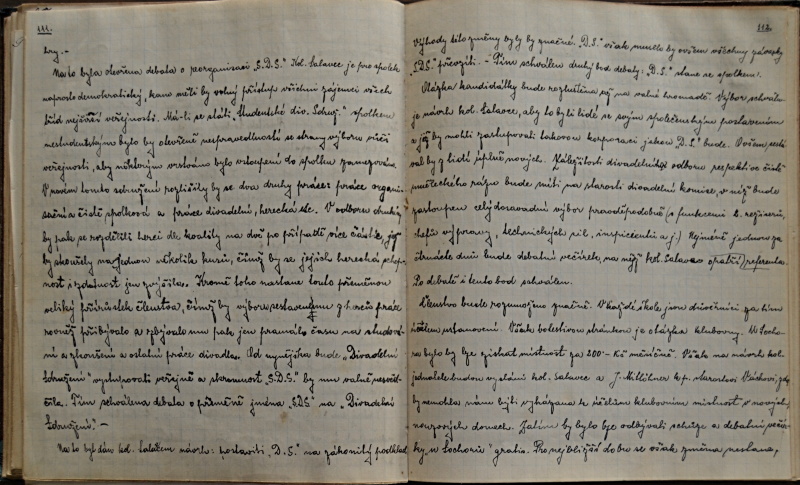 111.
hry. –
Na to byla otevřena debata o reorganisaci „S.D.S." Kol. Salavec je pro spolek
naprosto demokratický, kam měli by volný přístup všichni zájemci všech
tříd nejširší veřejnosti. Má-li se státi „Studentské div. Sdruž." spolkem
nestudentským bylo by otevřeně nespravedlností se strany výboru vůči
veřejnosti, aby některým vrstvám bylo vstoupení do spolku zamezováno.
V novém tomto sdružení rozlišily by se dva druhy práce: práce organi-
sační a čistě spolková a práce divadelní, herecká atd. V odboru druhém
by pak se rozdělili herci dle kvality na dvě po případě více částí, jež
by zkoušely najednou několik kusů, čímž by se jejich herecká schop-
nost i zdatnost jen zvýšila. Kromě toho nastane touto přeměnou
veliký přírůstek členstva, čímž by výboru sestavenému z herců práce
rovněž přibývalo a zbývalo mu pak jen pramálo času na studová-
ní a zkoušení a ostatní práce divadla. Od nynějška bude „Divadelní
Sdružení" vystupovati veřejně a skromnost „S.D.S." by mu valně nesvěd-
čila. Tím schválena debata o přeměně jména „S.D.S." na „Divadelní
Sdružení". –
Na to byl dán kol. Salavcem návrh: postaviti „D.S." na zákonitý podklad
112.
výhody této změny byly by značné. „D.S." však muselo by ovšem všechny závazky
„S.D.S." převzíti. – Tím schválen druhý bod debaty: „D.S." stane se spolkem.
Otázka kandidátky bude rozluštěna již na valné hromadě. Výbor schvalu-
je návrh kol. Salavce, aby to byli lidé se svým společenským postavením
a již by mohli zastupovati takovou korporaci jakou D.S." bude. Ovšem
by z lidí úplně nových. Záležitosti divadelního odboru respektive čistě
uměleckého rázu bude míti na starosti divadelní komise, v níž bude
zastoupen celý dosavadní výbor pravděpodobně (s funkcemi režisérů,
chefů výpravy, technických sil, inspicientů a j.) Nejméně jednou za
čtrnáct dnů bude debatní večírek, na nějž kol. Salavec opatří referenta.
Po debatě i tento bod schválen.
Členstvo bude rozmnoženo značně. V každé škole jsou důvěrníci za tím
účelem ustanoveni. Však bolestivou stránkou je otázka klubovny. U Socho-
ra bylo by lze získat místnost za 200 – Kč měsíčně. Však na návrh kol.
jednatele budou vysláni kol. Salavec a J. k p. starostovi
by nemohla nám býti vykázána k účelům klubovním místnost v nových
nouzových domech. Zatím by bylo lze odbývati schůze a debatní večír-
ky u Sochorů" gratis. Pro nejbližší dobu se však změna nestane,